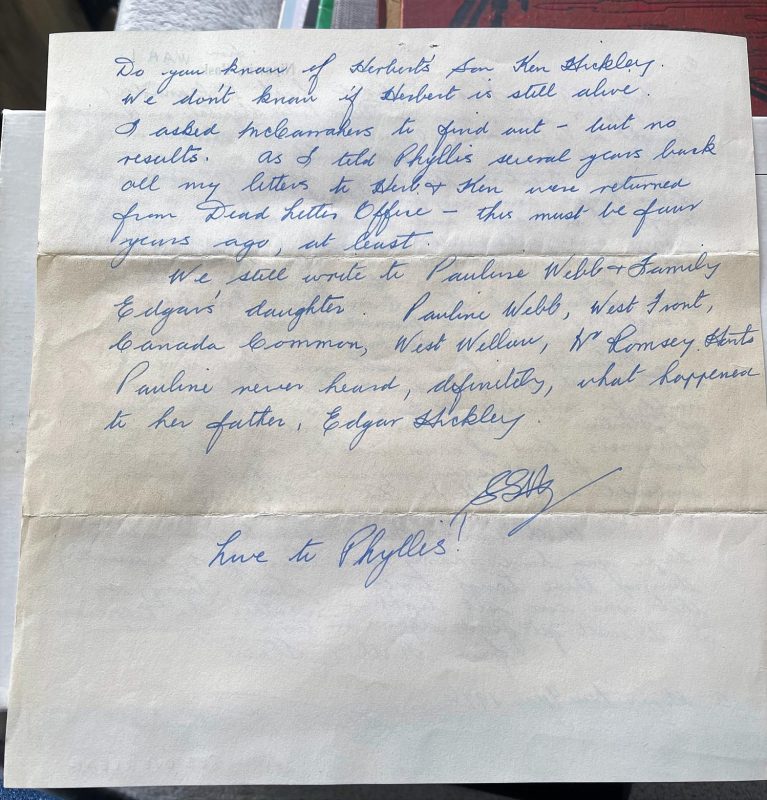 Do you know of Herbert's son Ken Hickley.
We don't know if Herbert is still alive.
I asked to find out – but no
results. As I told Phyllis several years back
all my letters to Herb & Ken were returned
from Dead Letter Office – this must be four
years ago, at least.
We still write to Pauline Webb & Family
Edgar's daughter. Pauline Webb, West Front,
Canada Common, West Wellow, Nr Romsey. Hants
Pauline never heard, definitely, what happened
to her father, Edgar Hickley.
Love to Phyllis!